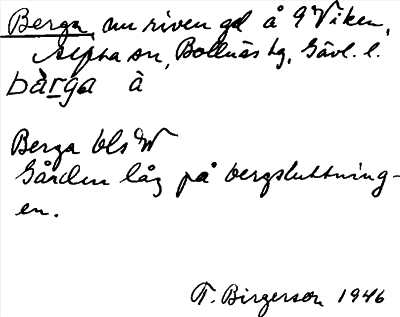 Berga, nu riven gd å 9 Viken,
Alpha sn, Bollnäs tg, Gävl. l.
bàrga à
Berga bls W
Gården låg på bergsluttning-
en.
T. Birgerson 1946